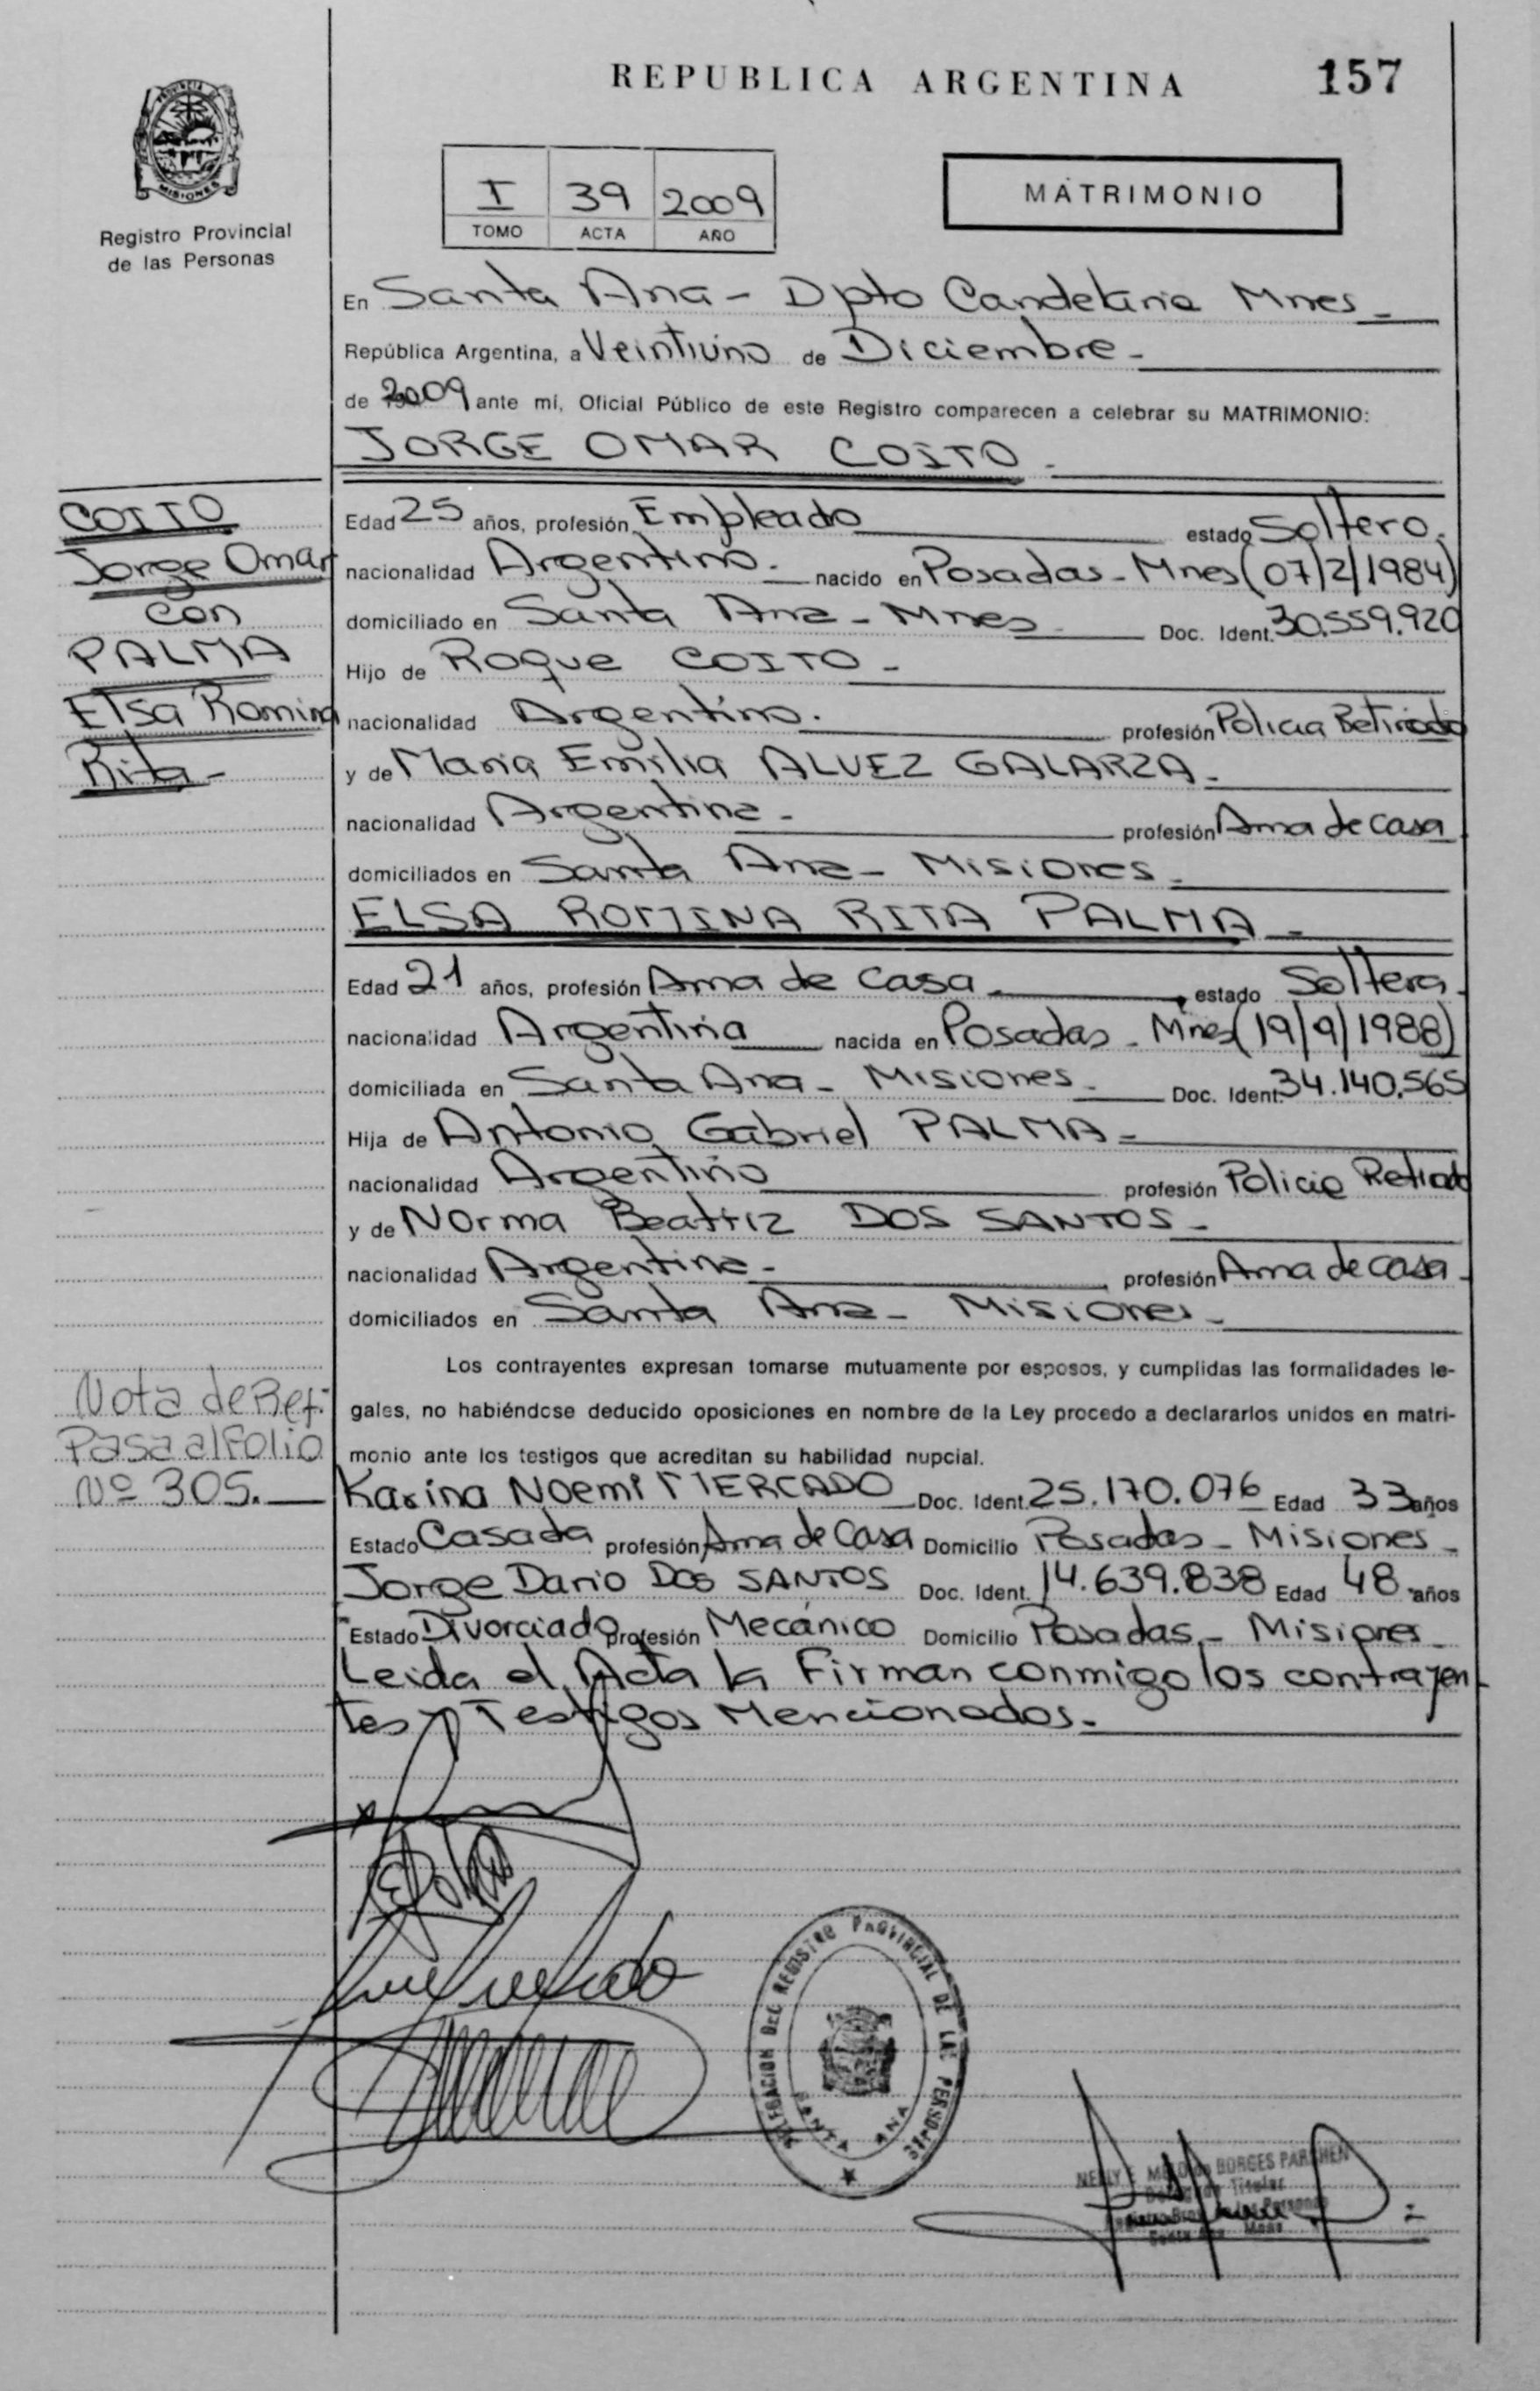 REPUBLICA ARGENTINA
157
PROVINCIA DE
MISIONES
Registro Provincial
de las Personas
I 39 2009
TOMO ACTA AÑO
MATRIMONIO
En Santa Ana - Dpto Candelaria Mnes -
República Argentina, a Veintiuno de Diciembre -
de 2009 ante mí, Oficial Público de este Registro comparecen a celebrar su MATRIMONIO:
JORGE OMAR COITO -
COITO
Jorge Omar
con
PALMA
Elsa Romina
Rita -
Edad 25 años, profesión Empleado estado Soltero.
nacionalidad Argentino. nacido en Posadas - Mnes (07/2/1984)
domiciliado en Santa Ana - Mnes Doc. Ident. 30.559.920
Hijo de Roque COITO -
nacionalidad Argentino. profesión Policia Retirado
y de Maria Emilia ALVEZ GALARZA -
nacionalidad Argentina - profesión Ama de casa
domiciliados en Santa Ana - Misiones -
ELSA ROMINA RITA PALMA -
Edad 21 años, profesión Ama de Casa - estado Soltera -
nacionalidad Argentina nacida en Posadas - Mnes (19/9/1988)
domiciliada en Santa Ana - Misiones - Doc. Ident. 34.140.565
Hija de Antonio Gabriel PALMA -
nacionalidad Argentino profesión Policia Retirado
y de Norma Beatriz DOS SANTOS -
nacionalidad Argentina - profesión Ama de casa -
domiciliados en Santa Ana - Misiones -
Los contrayentes expresan tomarse mutuamente por esposos, y cumplidas las formalidades le-
gales, no habiéndose deducido oposiciones en nombre de la Ley procedo a declararlos unidos en matri-
monio ante los testigos que acreditan su habilidad nupcial.
Nota de Ref:
Pasa al Folio
Nº 305.
Karina Noemi MERCADO Doc. Ident. 25.170.076 Edad 33 años
Estado Casada profesión Ama de Casa Domicilio Posadas - Misiones -
Jorge Dario Dos SANTOS Doc. Ident. 14.639.838 Edad 48 años
Estado Divorciado profesión Mecánico Domicilio Posadas - Misiones -
Leida el Acta la Firman conmigo los contrayen-
tes y Testigos Mencionados.
DELEGACION DEL REGISTRO PROVINCIAL DE LAS PERSONAS
SANTA ANA
NELLY E. MELO de BORGES PARCHEN
Titular